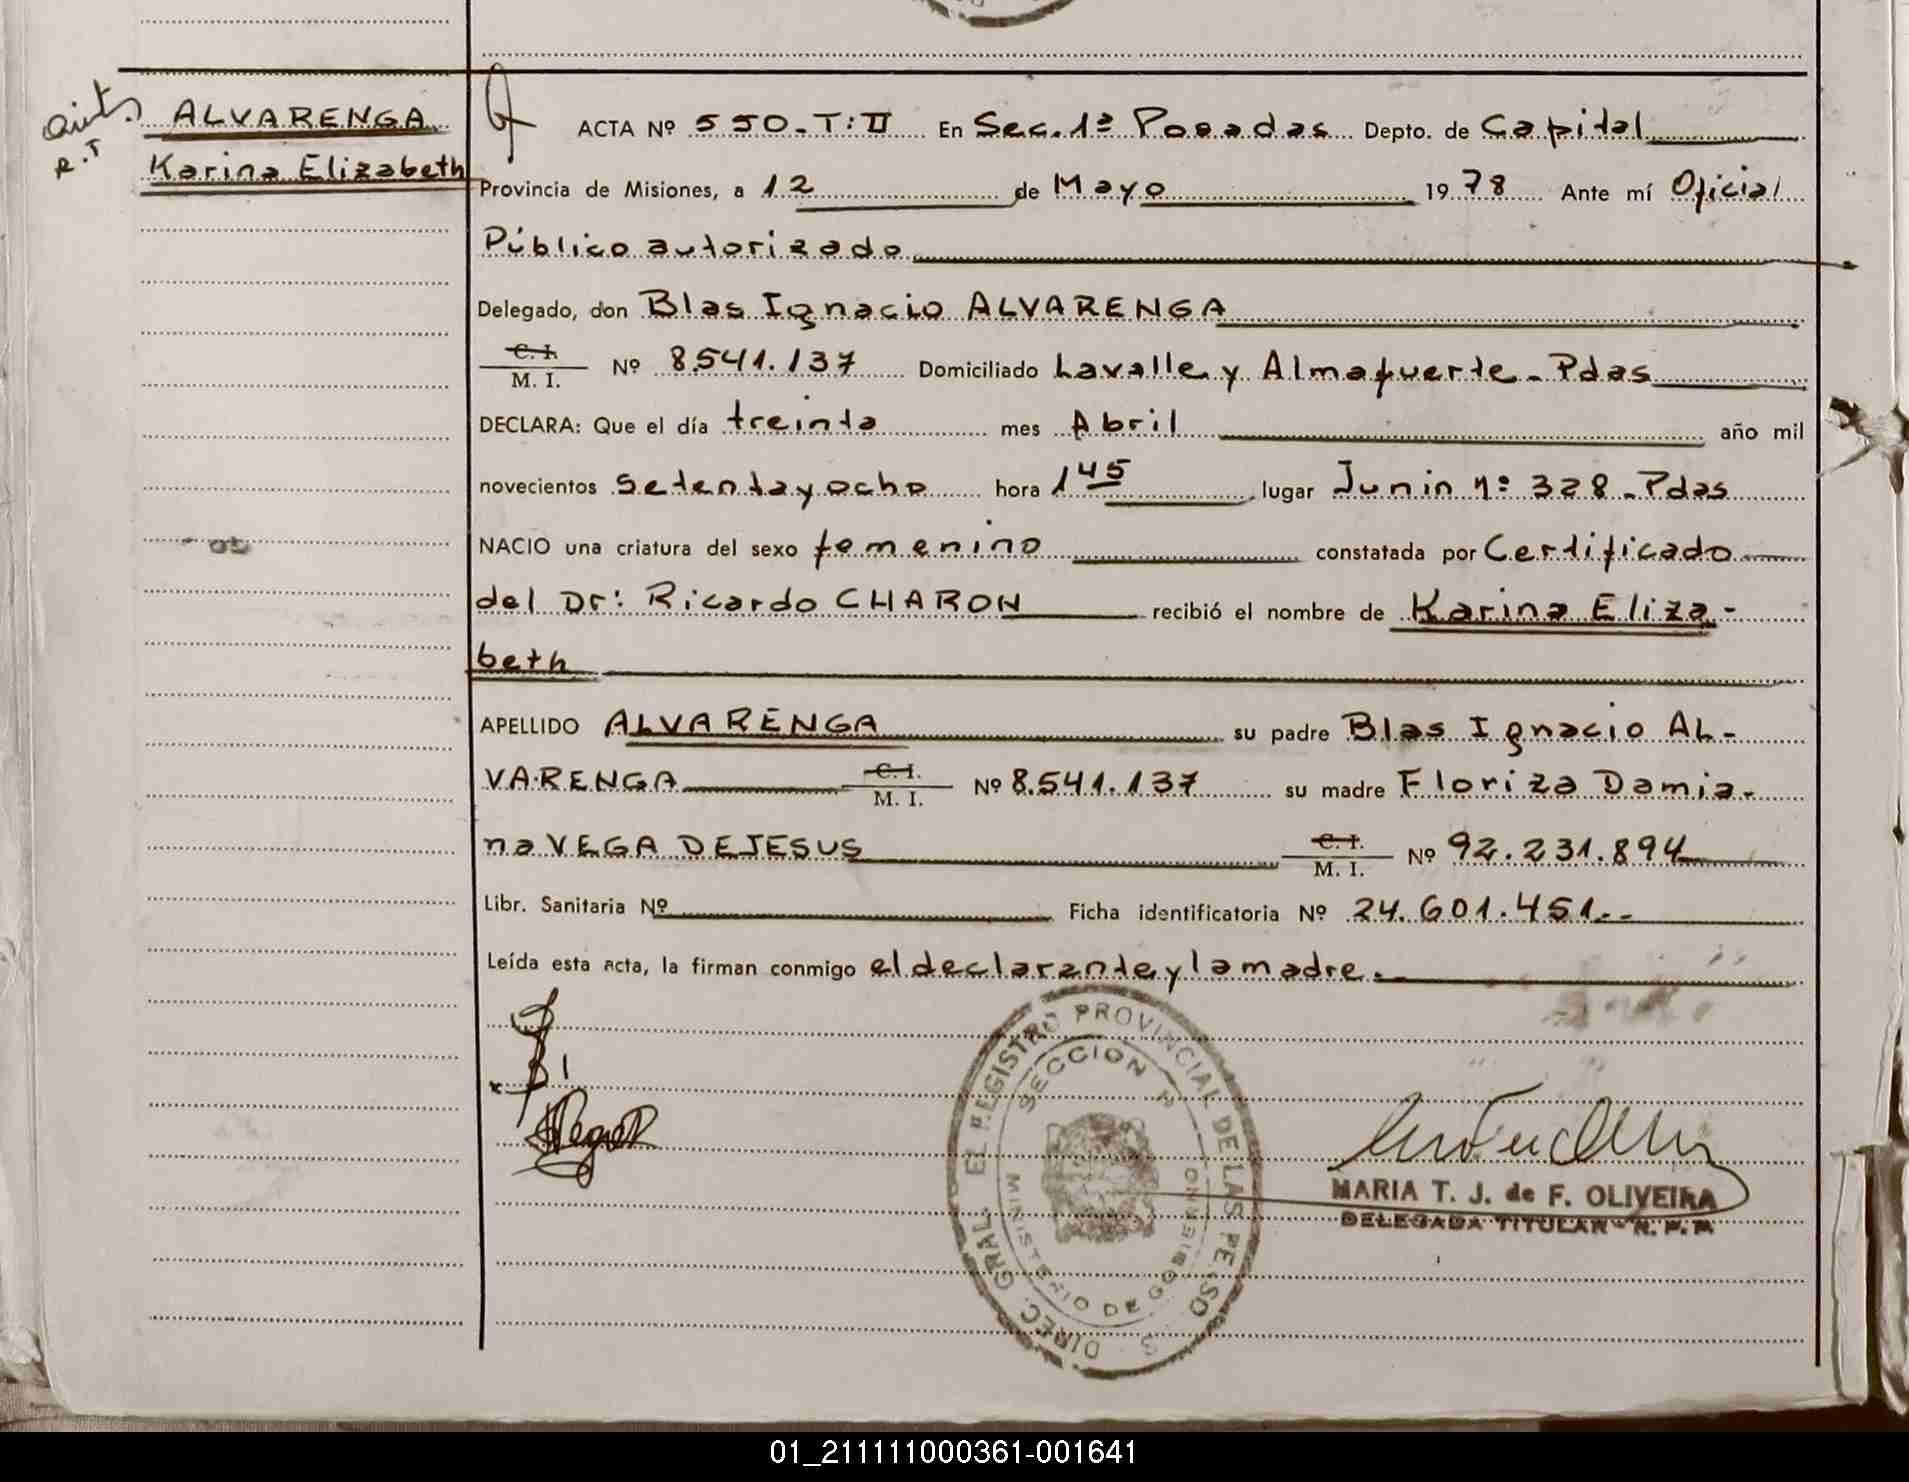 Aut.
R.T
ALVARENGA
Karina Elizabeth
ACTA Nº 550-T:II En Sec. 1ª Posadas Depto. de Capital
Provincia de Misiones, a 12 de Mayo 1978 Ante mí Oficial
Público autorizado
Delegado, don Blas Ignacio ALVARENGA
C. I.
M. I. Nº 8.541.137 Domiciliado Lavalle y Almafuerte - Pdas
DECLARA: Que el día treinta mes Abril año mil
novecientos setenta y ocho hora 1 45 lugar Junin nº 328 - Pdas
NACIO una criatura del sexo femenino constatada por Certificado
del Dr: Ricardo CHARON recibió el nombre de Karina Eliza-
beth
APELLIDO ALVARENGA su padre Blas Ignacio AL-
VARENGA C. I.
M. I. Nº 8.541.137 su madre Floriza Damia-
na VEGA DEJESUS C. I.
M. I. Nº 92.231.894
Libr. Sanitaria Nº Ficha identificatoria Nº 24.601.451.-
Leída esta acta, la firman conmigo el declarante y la madre.
DIREC. GRAL. EL REGISTRO PROVINCIAL DE LAS PERSONAS
SECCION 1ª
MINISTERIO DE GOBIERNO
MARIA T. J. de F. OLIVEIRA
DELEGADA TITULAR - R. P. P.
01_211111000361-001641